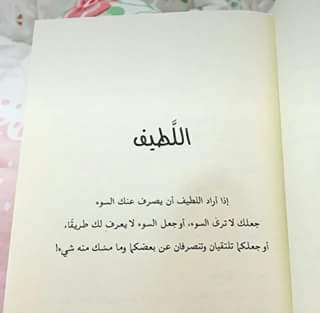 اللَّطيف
إذا أراد اللطيف أن يصرف عنك السوء
جعلك لا ترى السوء، أو جعل السوء لا يعرف لك طريقًا،
أو جعلكما تلتقيان وتنصرفان عن بعضكما وما مسّك منه شيء!